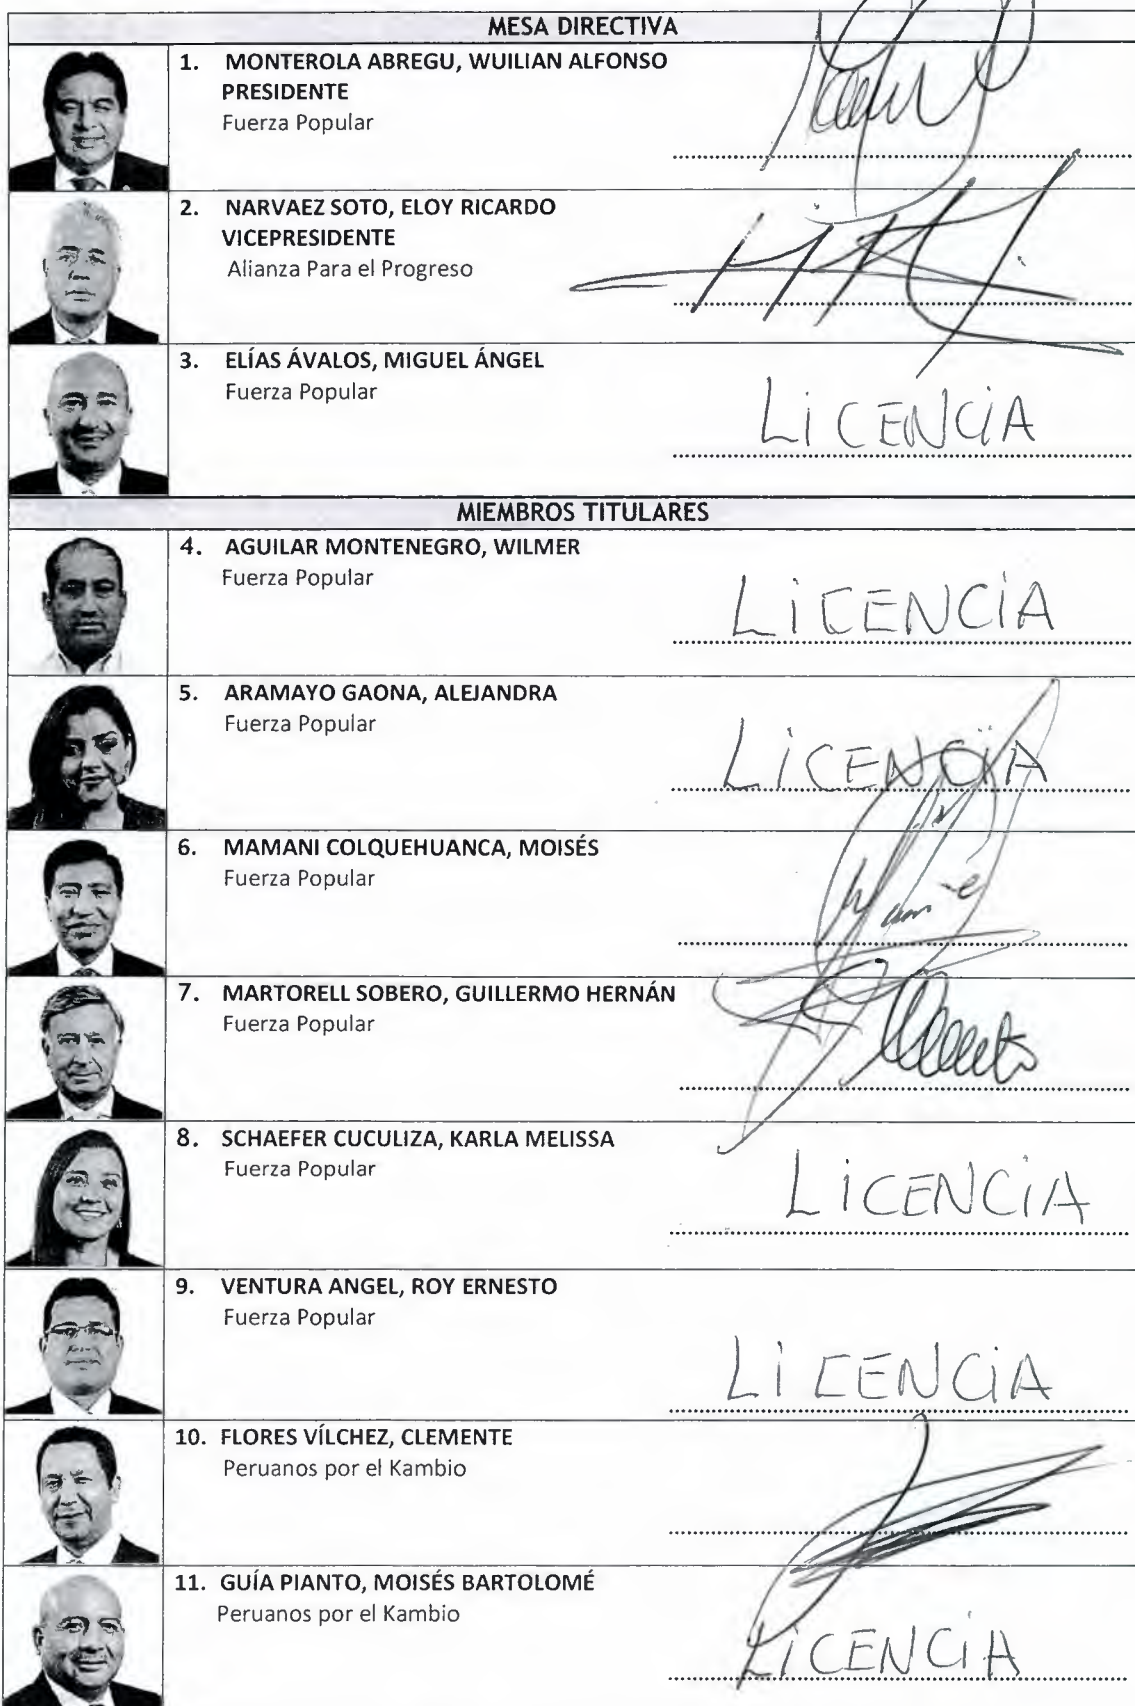 MESA DIRECTIVA
1. MONTEROLA ABREGU, WUILIAN ALFONSO
PRESIDENTE
Fuerza Popular
2. NARVAEZ SOTO, ELOY RICARDO
VICEPRESIDENTE
Alianza Para el Progreso
3. ELÍAS ÁVALOS, MIGUEL ÁNGEL
Fuerza Popular
LICENCIA
MIEMBROS TITULARES
4. AGUILAR MONTENEGRO, WILMER
Fuerza Popular
LICENCIA
5. ARAMAYO GAONA, ALEJANDRA
Fuerza Popular
LICENCIA
6. MAMANI COLQUEHUANCA, MOISÉS
Fuerza Popular
7. MARTORELL SOBERO, GUILLERMO HERNÁN
Fuerza Popular
8. SCHAEFER CUCULIZA, KARLA MELISSA
Fuerza Popular
LICENCIA
9. VENTURA ANGEL, ROY ERNESTO
Fuerza Popular
LICENCIA
10. FLORES VÍLCHEZ, CLEMENTE
Peruanos por el Kambio
11. GUÍA PIANTO, MOISÉS BARTOLOMÉ
Peruanos por el Kambio
LICENCIA